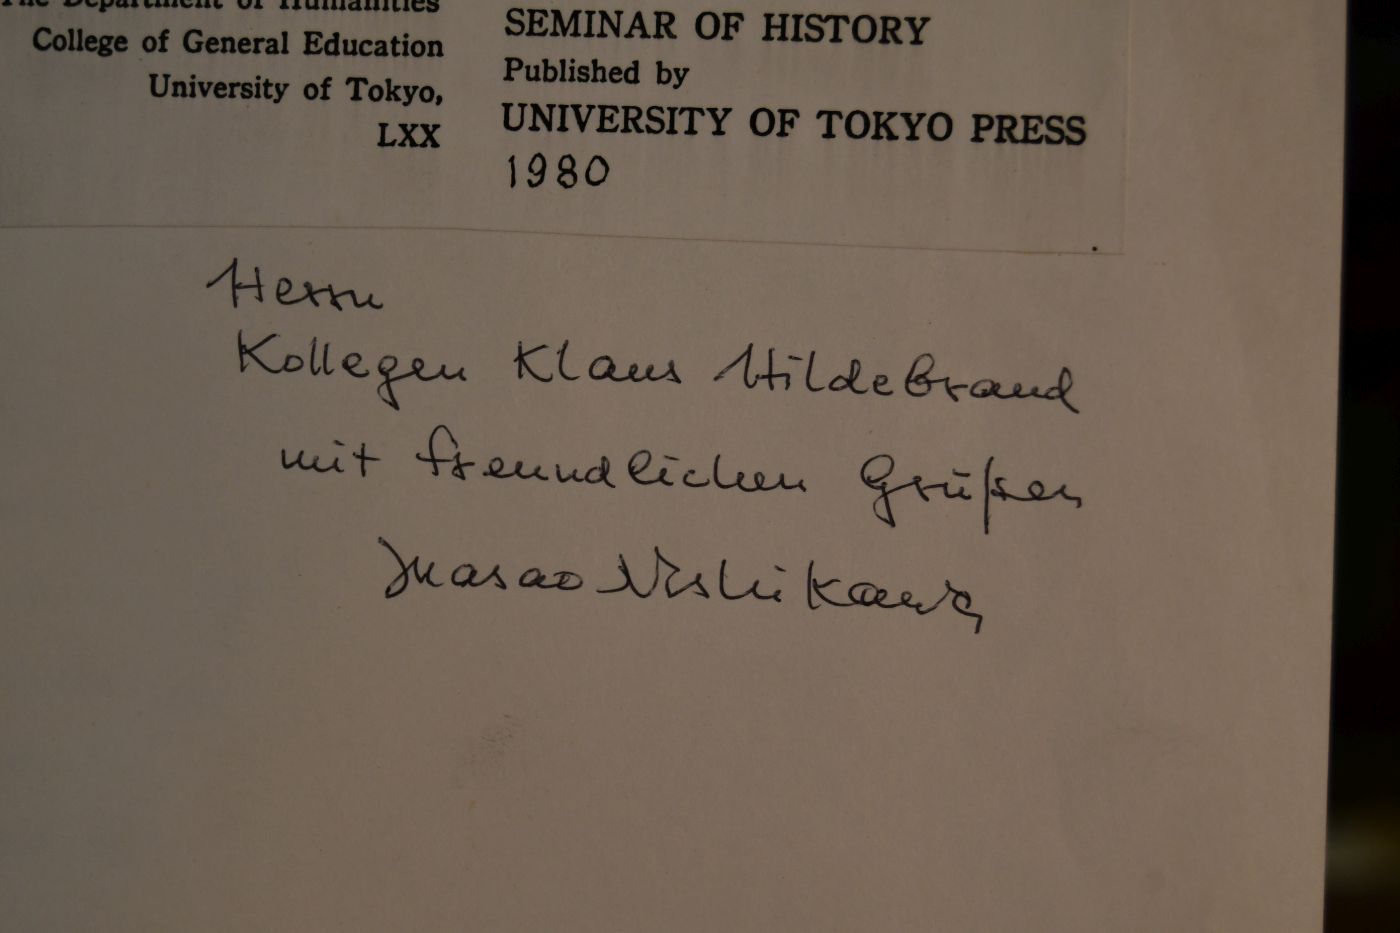 The Department of Humanities
College of General Education
University of Tokyo,
LXX
SEMINAR OF HISTORY
Published by
UNIVERSITY OF TOKYO PRESS
1980
Herrn
Kollegen Klaus Hildebrand
mit freundlichen Grüßen
Masao Nishikawa